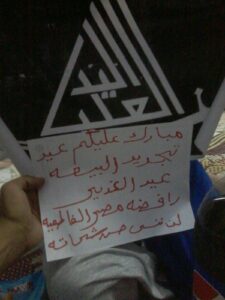 مبارك عليكم عيد
تجديد البيعه
عيد الغدير
رافضه مصر الفاطميه
لن ننسى حسن شحاته